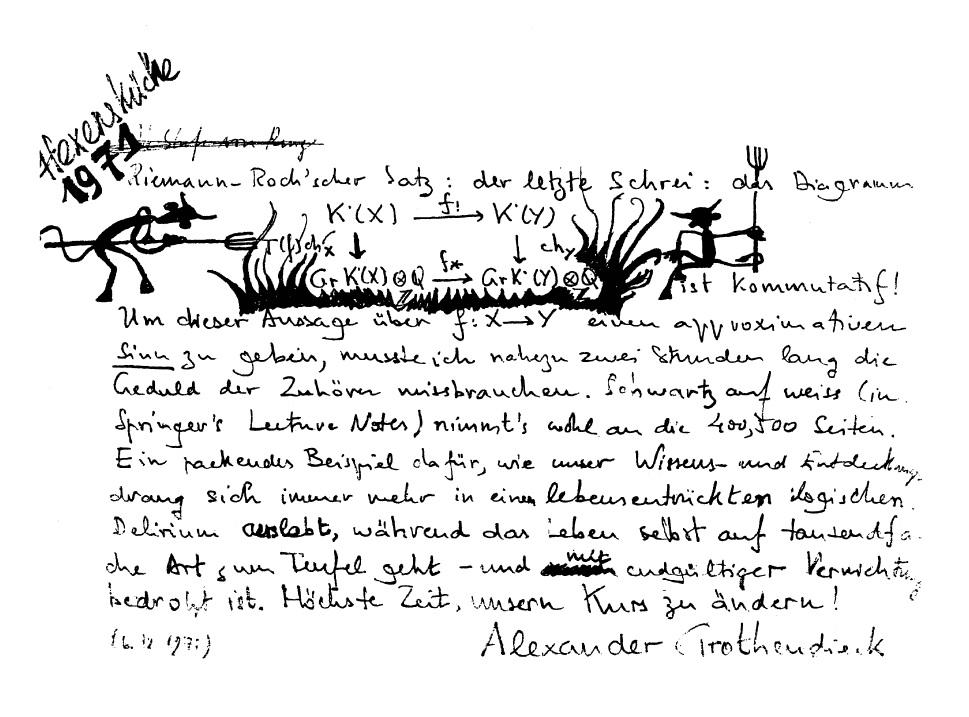 Hexenküche
1971
Riemann-Roch'scher Satz: der letzte Schrei: das Diagramm
K˙(X) —f!→ K˙(Y)
T(f)chₓ ↓ ↓ ch_Y
Gr K˙(X)⊗Q —f*→ Gr K˙(Y)⊗Q
Z Z
ist kommutatif!
Um dieser Aussage über f: X → Y einen approximativen
Sinn zu geben, musste ich nahezu zwei Stunden lang die
Geduld der Zuhörer missbrauchen. Schwartz auf weiss (in
Springer's Lecture Notes) nimmt's wohl an die 400, 500 Seiten.
Ein packendes Beispiel dafür, wie unser Wissens- und Entdeckungs-
drang sich immer mehr in einem lebensentrückten logischen
Delirium auslebt, während das Leben selbst auf tausendfa-
che Art zum Teufel geht - und mit endgültiger Vernichtung
bedroht ist. Höchste Zeit, unsern Kurs zu ändern!
Alexander Grothendieck